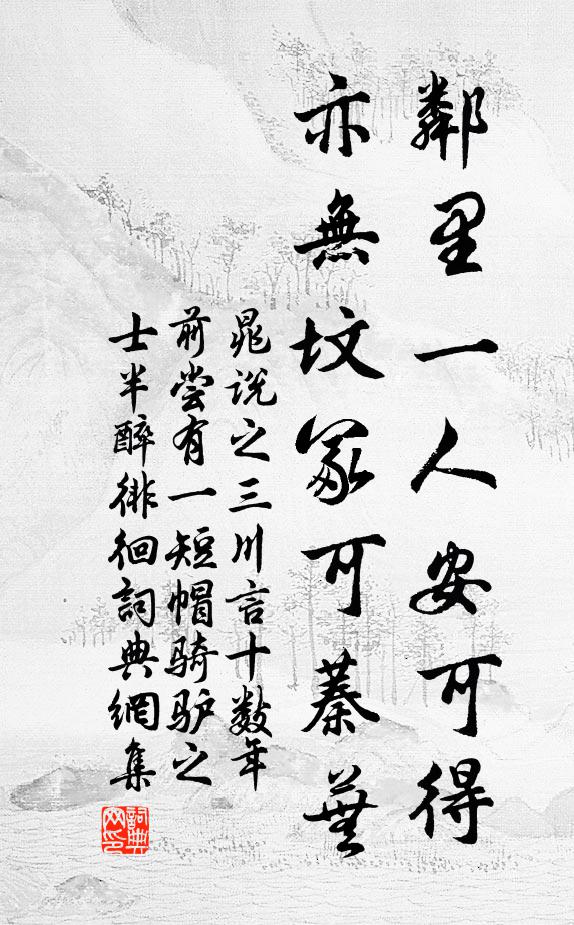 鄰里一人安可得
亦無墳冢可蓁蕪
晁说之三川言十数年
前尝有一短帽骑驴之
士半醉徘徊詞典網集
詞典网印